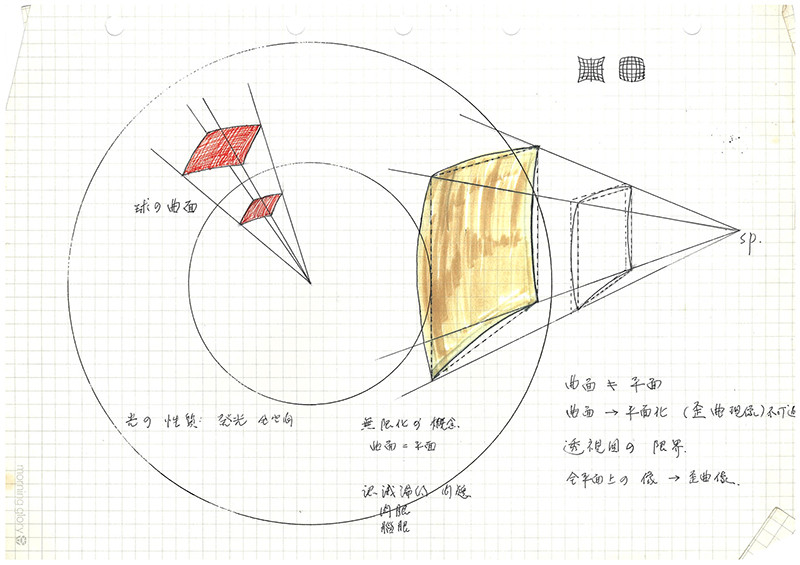 球の曲面
sp.
光の性質: 発光 全方向
無限化の概念.
曲面 = 平面
肉眼
脳眼
曲面 ≠ 平面
曲面 → 平面化 (歪曲現像) 不可避
透視図の限界.
全平面上の像 → 歪曲像.
morning glory